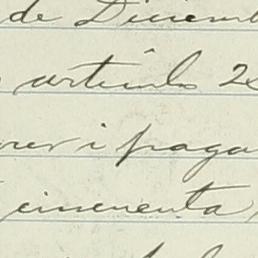 de Diciemb
artículo 2
rer i paga
cincuenta